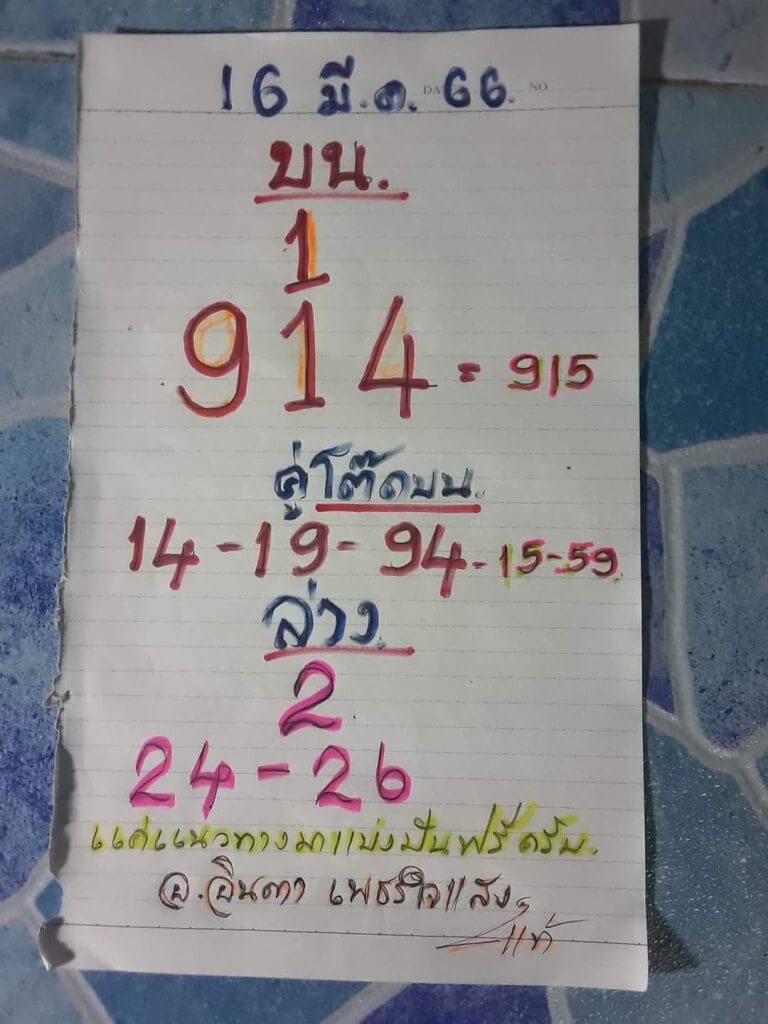 16 มี.ค. 66.
DA NO
บน.
1
914 = 915
คู่โต๊ดบน.
14-19-94-15-59
ล่าง.
2
24-26
แค่แนวทางมาแบ่งปันฟรีครับ.
อ.อินตา เพชรใจแสง
แท้